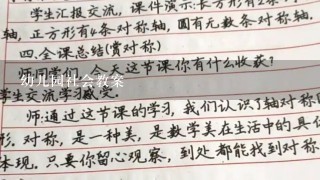 学生汇报交流,课件演示:长方形有2条
轴,正方形有4条对称轴,圆有无数条对称轴.
四.全课总结(赏对称)
今天这节课你有什么收获?
幼儿园社会教案
学生交流学习
师:通过这节课的学习,我们认识了轴对称
形.对称,是一种美,是数学美在生活中的具
体现.只要你留心观察,到处都能找到对称